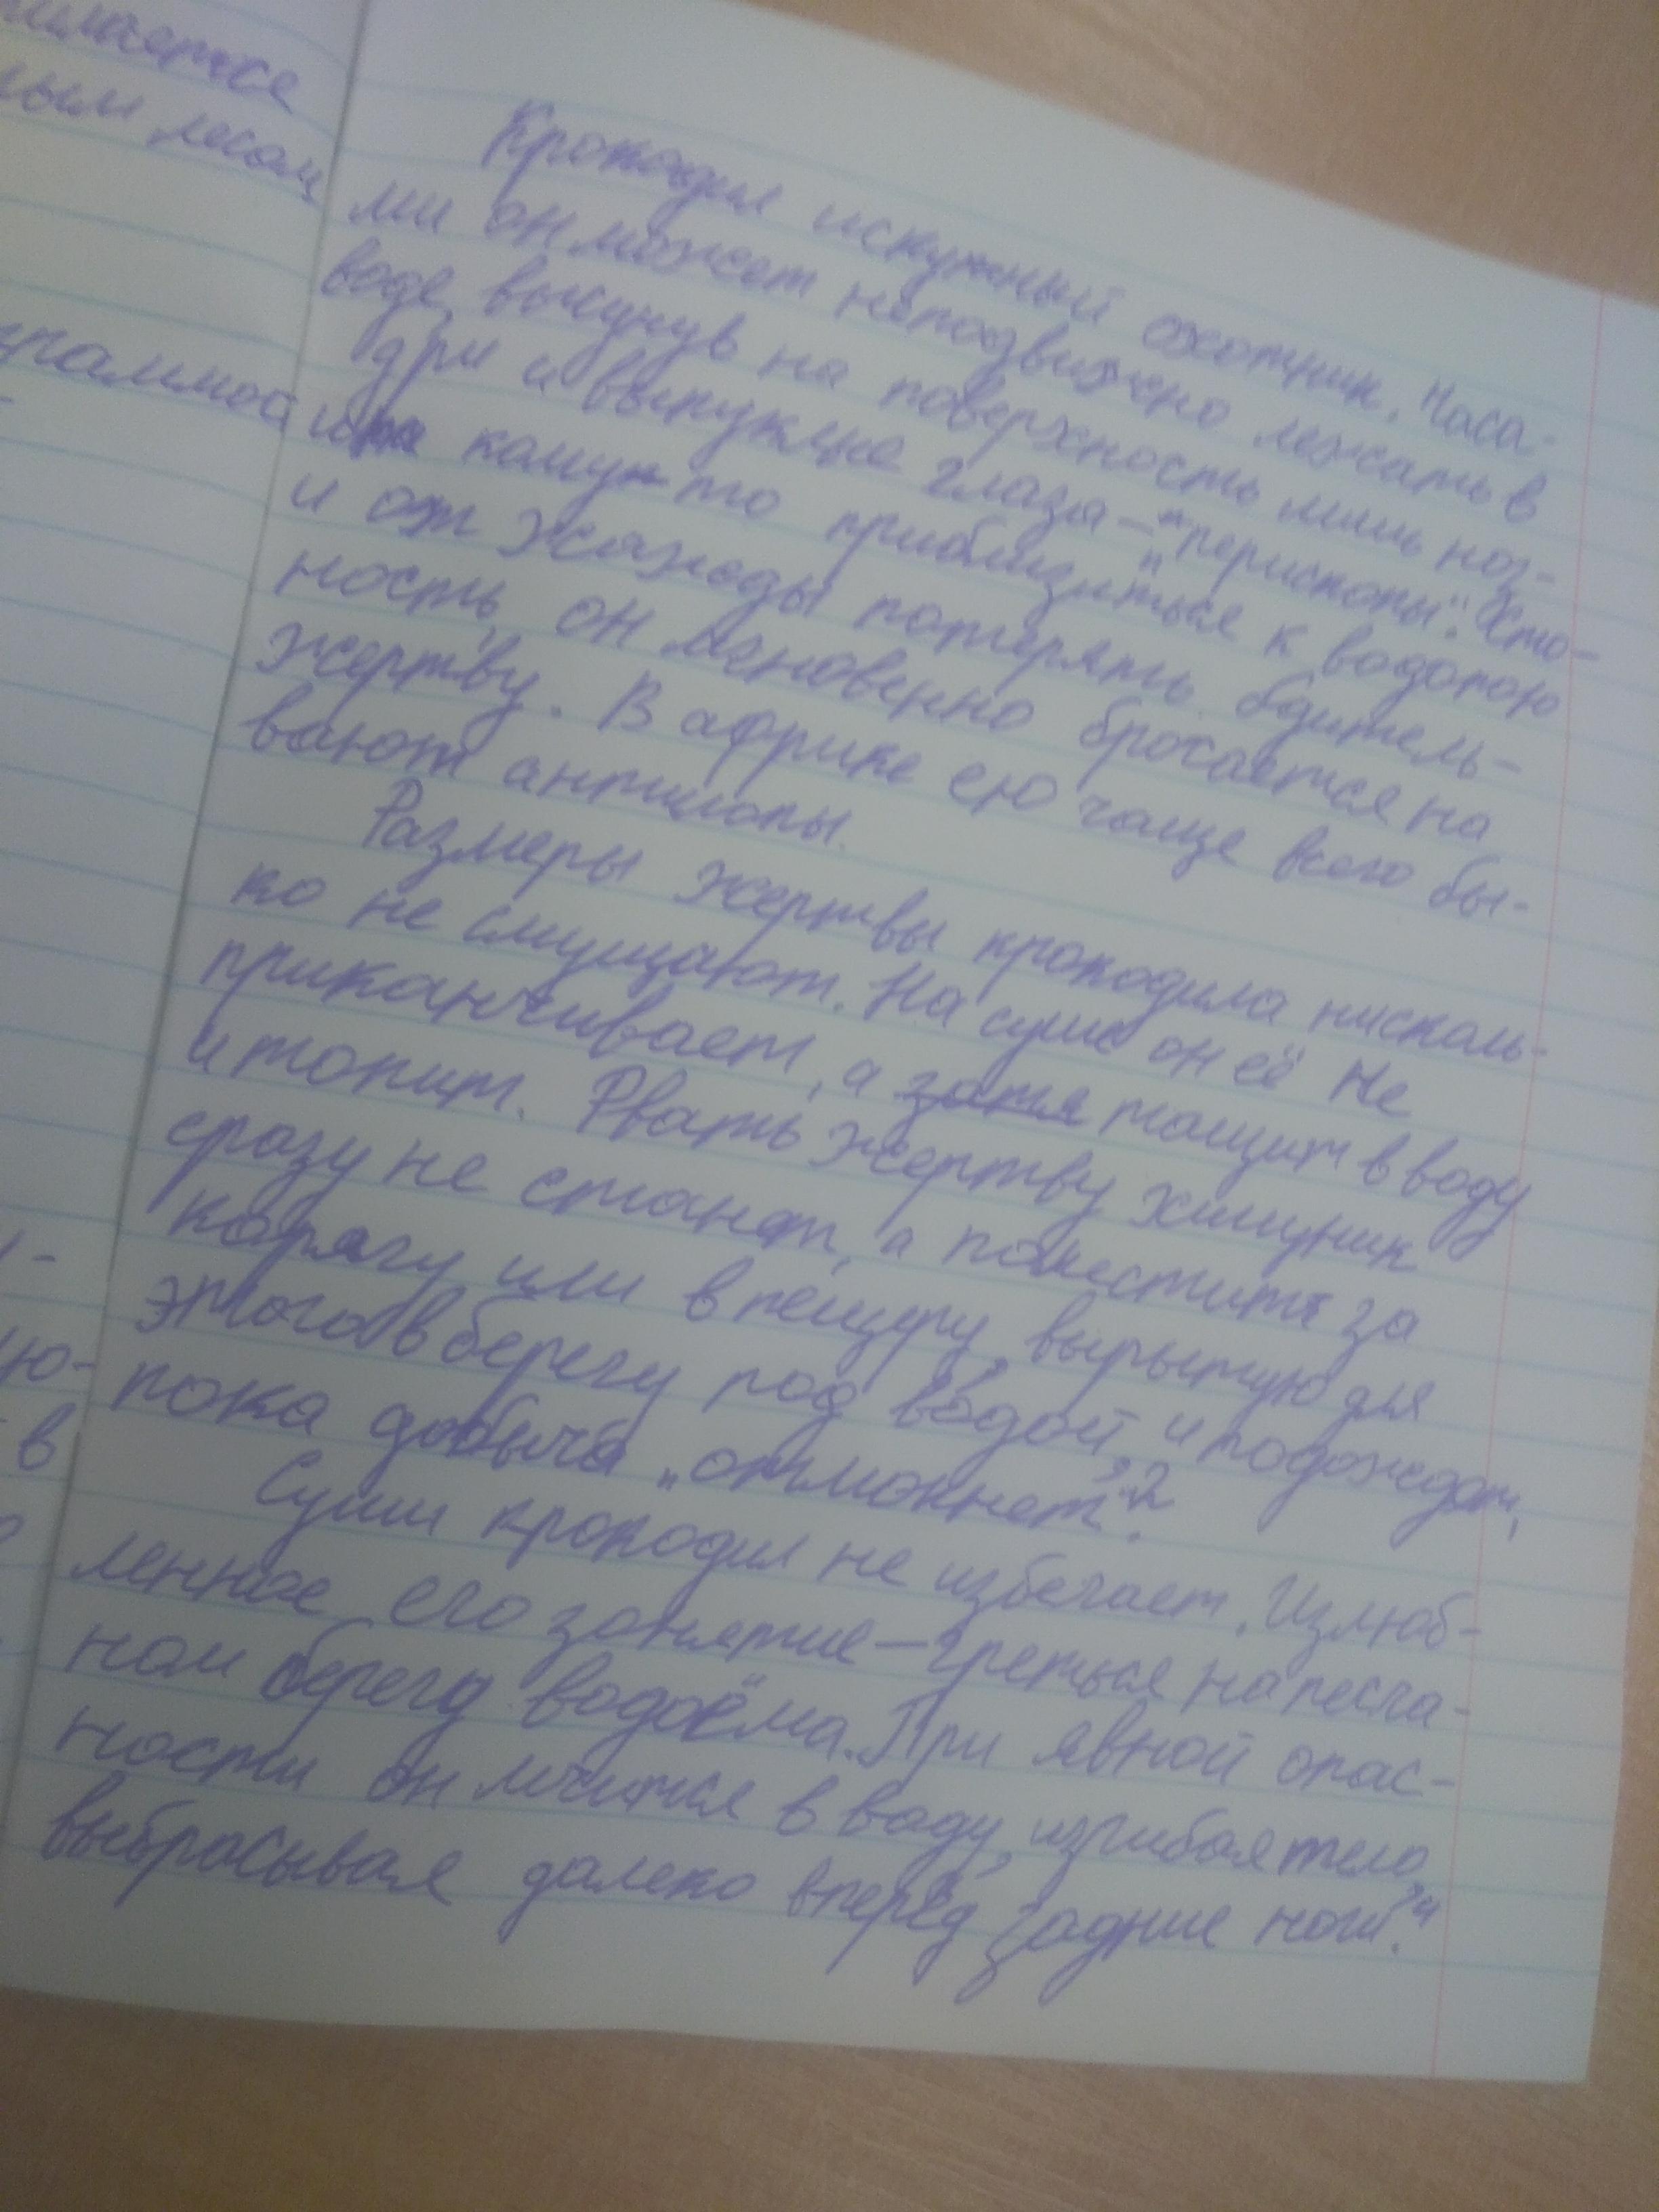 Крокодил искуный охотник. Часа-
ми он может неподвижно лежать в
воде, высунув на поверхность лишь ноз-
дри и выпуклые глаза – "перископы". Сто-
ит кому то приблизиться к водопою
и от жажды потерять бдитель-
ность, он мгновенно бросается на
жертву. В африке ею чаще всего бы-
вают антилопы.
Размеры жертвы крокодила нисколь-
ко не смущают. На суше он её не
приканчивает, а тащит в воду
и топит. Рвать жертву хищник
сразу не станет, а поместит за
корягу или в пещеру, вырытую для
этого в берегу под водой, и подождет,
пока добыча „отмокнет".
Суши крокодил не избегает. Излюб-
ленное его занятие – греться на песча-
ном берегу водоёма. При явной опас-
ности он мчится в воду, изгибая тело,
выбрасывая далеко вперёд задние ноги."
лесам
в